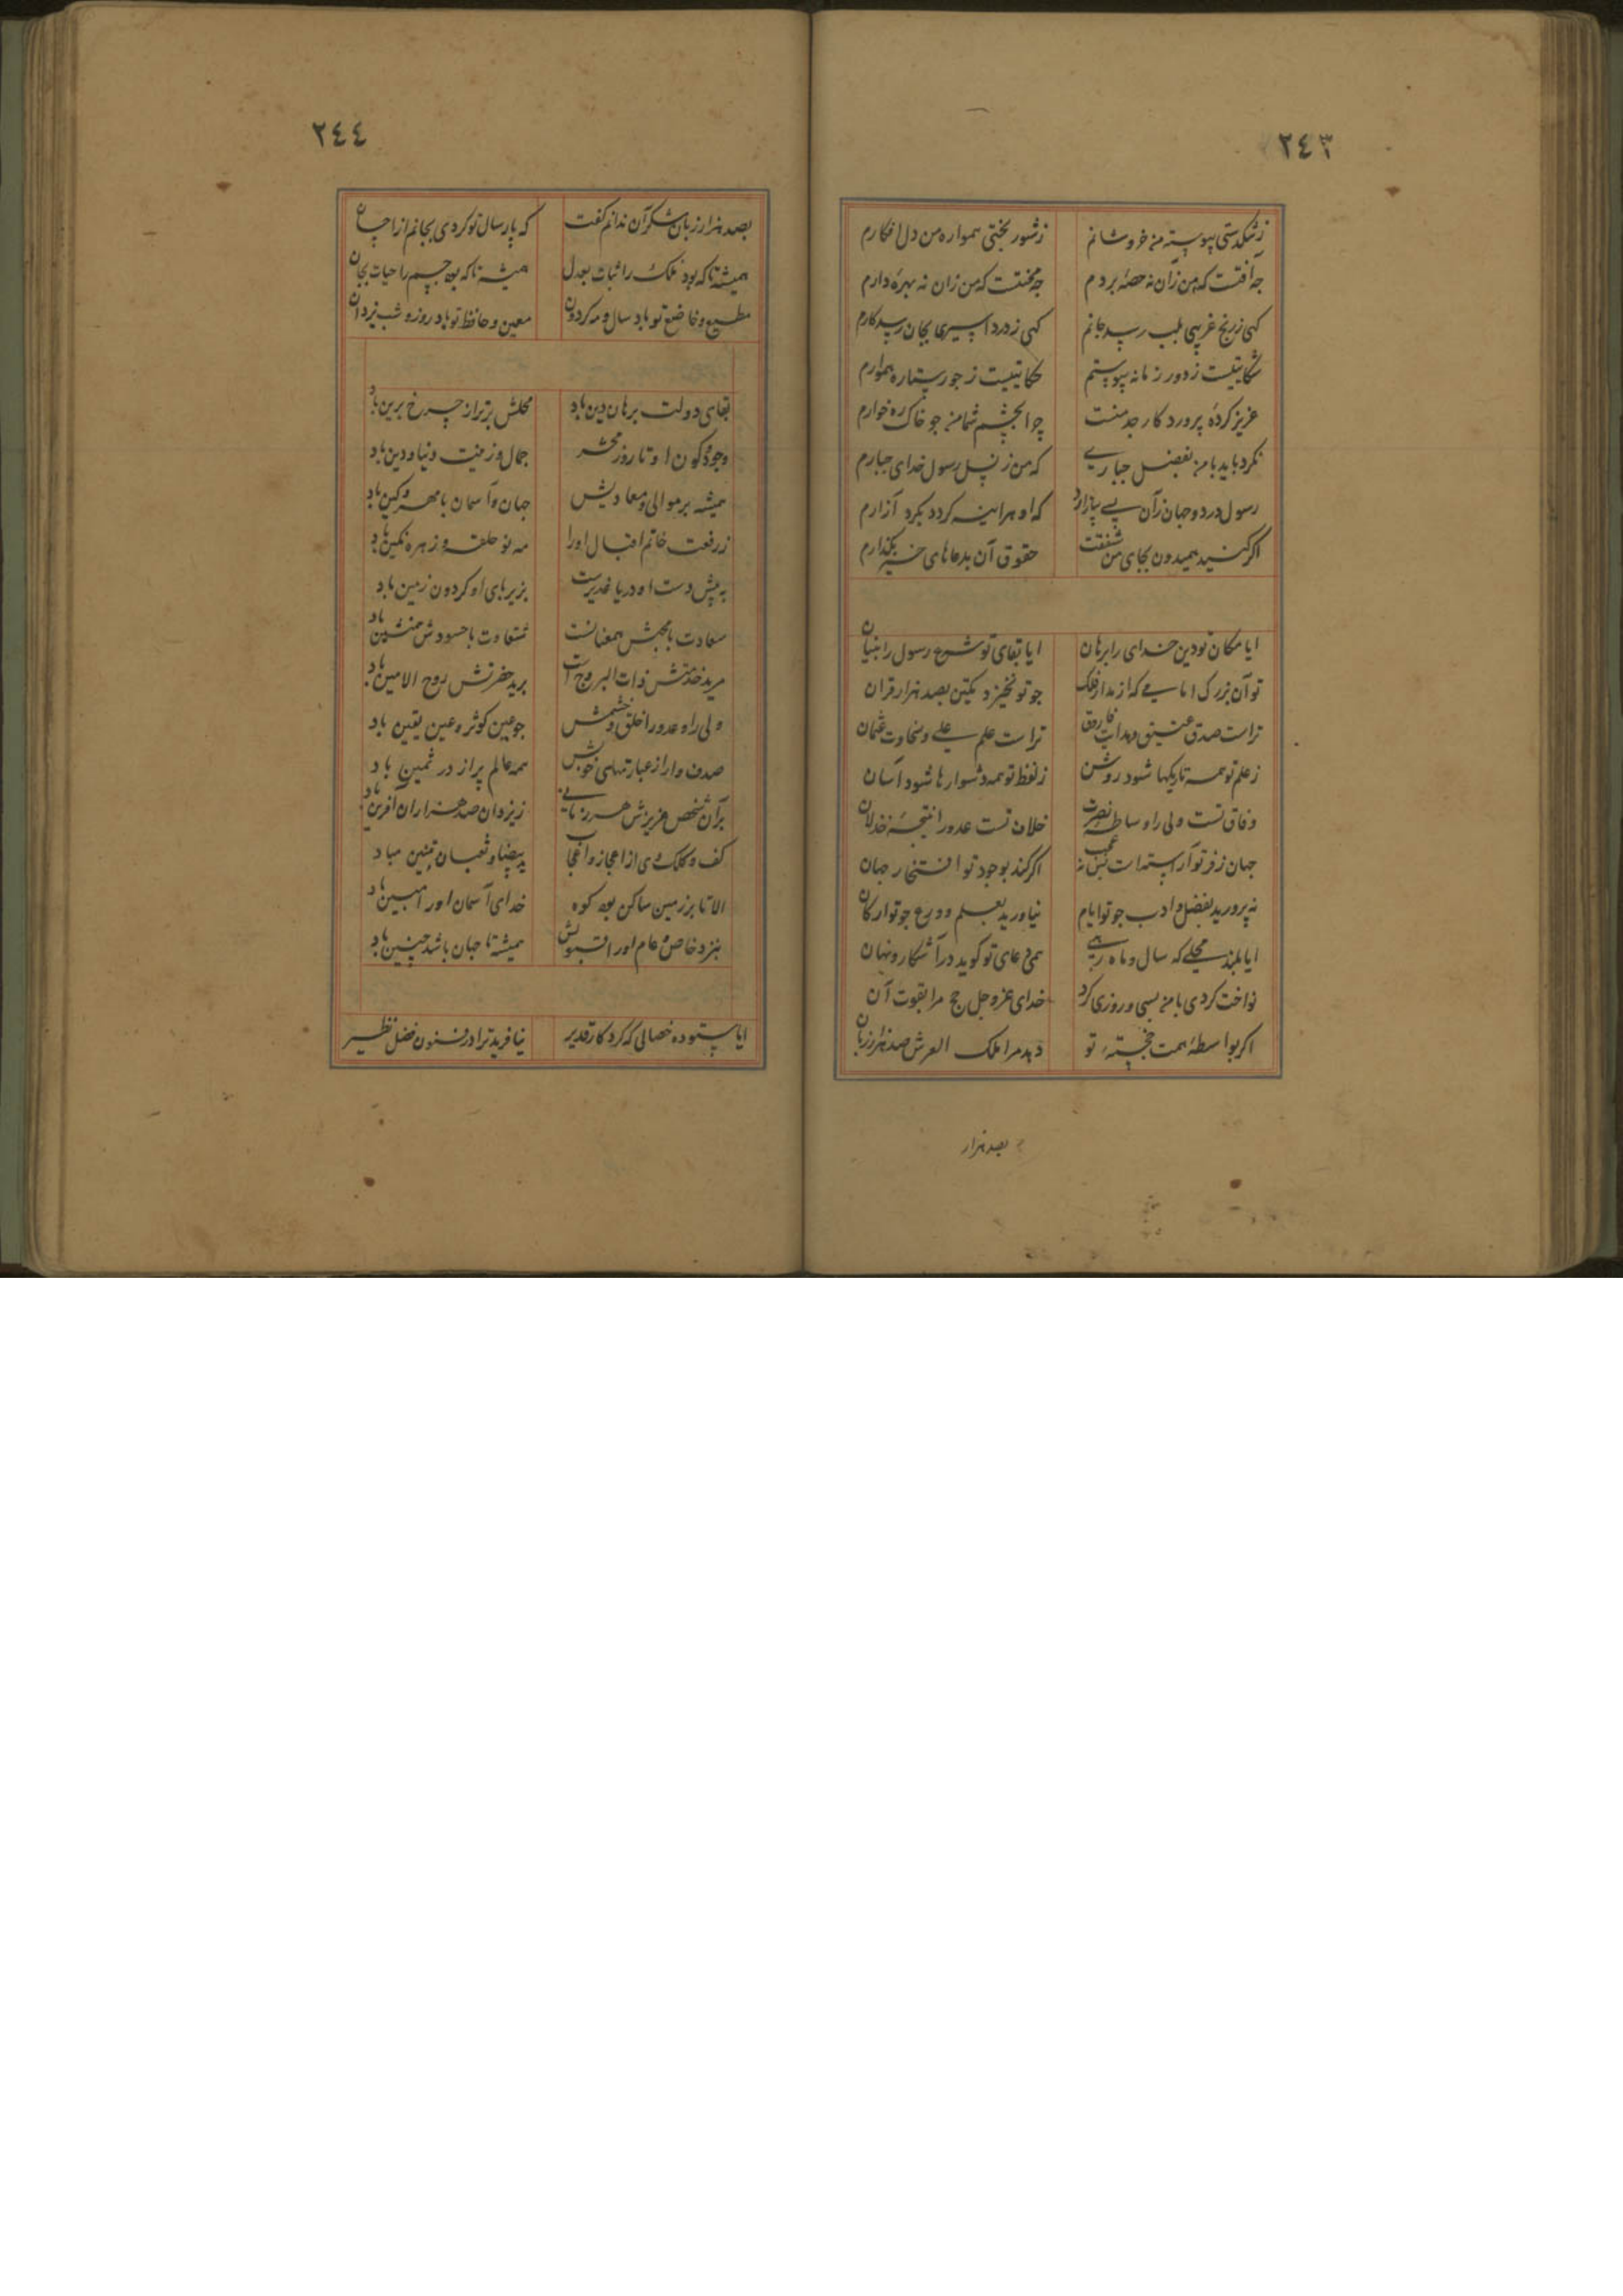 ٢٤٣
ز تنکدستی پیوسته من خروشانم ز شور بختی همواره من دل افکارم
چه آفتست که من زان نه حصه بردم چه محنتست که من زان نه بهره دارم
کهی ز رنج غریبی بلب رسد جانم کهی ز درد اسیری بجان رسد کارم
شکایتیست ز دور زمانه پیوستم حکایتیست ز جور ستاره هموارم
عزیز کرده پروردکار جد منست چرا بچشم شما من چو خاک ره خوارم
نکرد باید با من بفضل جباری که من ز نسل رسول خدای جبارم
رسول در دو جهان زآن پی بیازارد که او هراینه کردد بکرد آزارم
اکر کنید همیدون بجای من شفقت حقوق آن بدعاهای خیر بکذارم
ایا مکان تو دین خدای را برهان ایا بقای تو شرع رسول را بنیان
تو آن بزرک امامی که از مدار فلک چو تو نخیزد یکتن بصد هزار قران
تراست صدق عتیق و مهابت فاروق تراست علم علی و سخاوت عثمان
ز علم تو همه تاریکها شود روشن ز لفظ تو همه دشوارها شود آسان
وفاق تست ولی را وساطه نصرت خلاف تست عدو را نتیجه خذلان
جهان ز فر تو آراستست نیست عجب اکر کند بوجود تو افتخار جهان
نه پرورید بفضل و ادب چو تو ایام نیاورید بعلم و ورع چو تو ارکان
ایا بلند محلی که سال و ماه رهی همی دعای تو کوید در آشکار و نهان
نواخت کردی با من بسی و روزی کرد خدای عز و جل حج مرا بقوت آن
اکر بواسطه همت خجسته تو دهد مرا ملک العرش صد هزار زبان
بصد هزار
٢٤٤
بصد هزار زبان شکر آن ندانم کفت که پارسال تو کردی بجانم از احسان
همیشه تا که بود ملک را ثبات بعدل همیشه تا که بود جسم را حیات بجان
مطیع و خاضع تو باد سال و مه کردون معین و حافظ تو باد روز و شب یزدان
بقای دولت برهان دین باد محلش برتر از چرخ برین باد
وجود کون او تا روز محشر جمال و زینت دنیا و دین باد
همیشه بر موالی و معادیش جهان و آسمان با مهر و کین باد
ز رفعت خاتم اقبال او را مه نو حلقه و زهره نکین باد
به پیش دست او دریا غدیرست بزیر پای او کردون زمین باد
سعادت با محبش همعنانست شقاوت با حسودش همنشین باد
مرید خدمتش ذات البروج است برید حضرتش روح الامین باد
ولی را و عدو را خلق و خشمش چو عین کوثر و عین یقین باد
صدف وار از عبارتهای خوبش همه عالم پر از در ثمین باد
بر آن شخص عزیزش هر زمانی ز یزدان صد هزاران آفرین باد
کف و کلک وی از اعجاز و اعجاب ید بیضا و ثعبان مبین باد
الا تا بر زمین ساکن بود کوه خدای آسمان او را معین باد
بنزد خاص و عام او را قبولش همیشه تا جهان باشد چنین باد
ایا ستوده خصالی که کردکار قدیر نیافرید ترا در فنون فضل نظیر